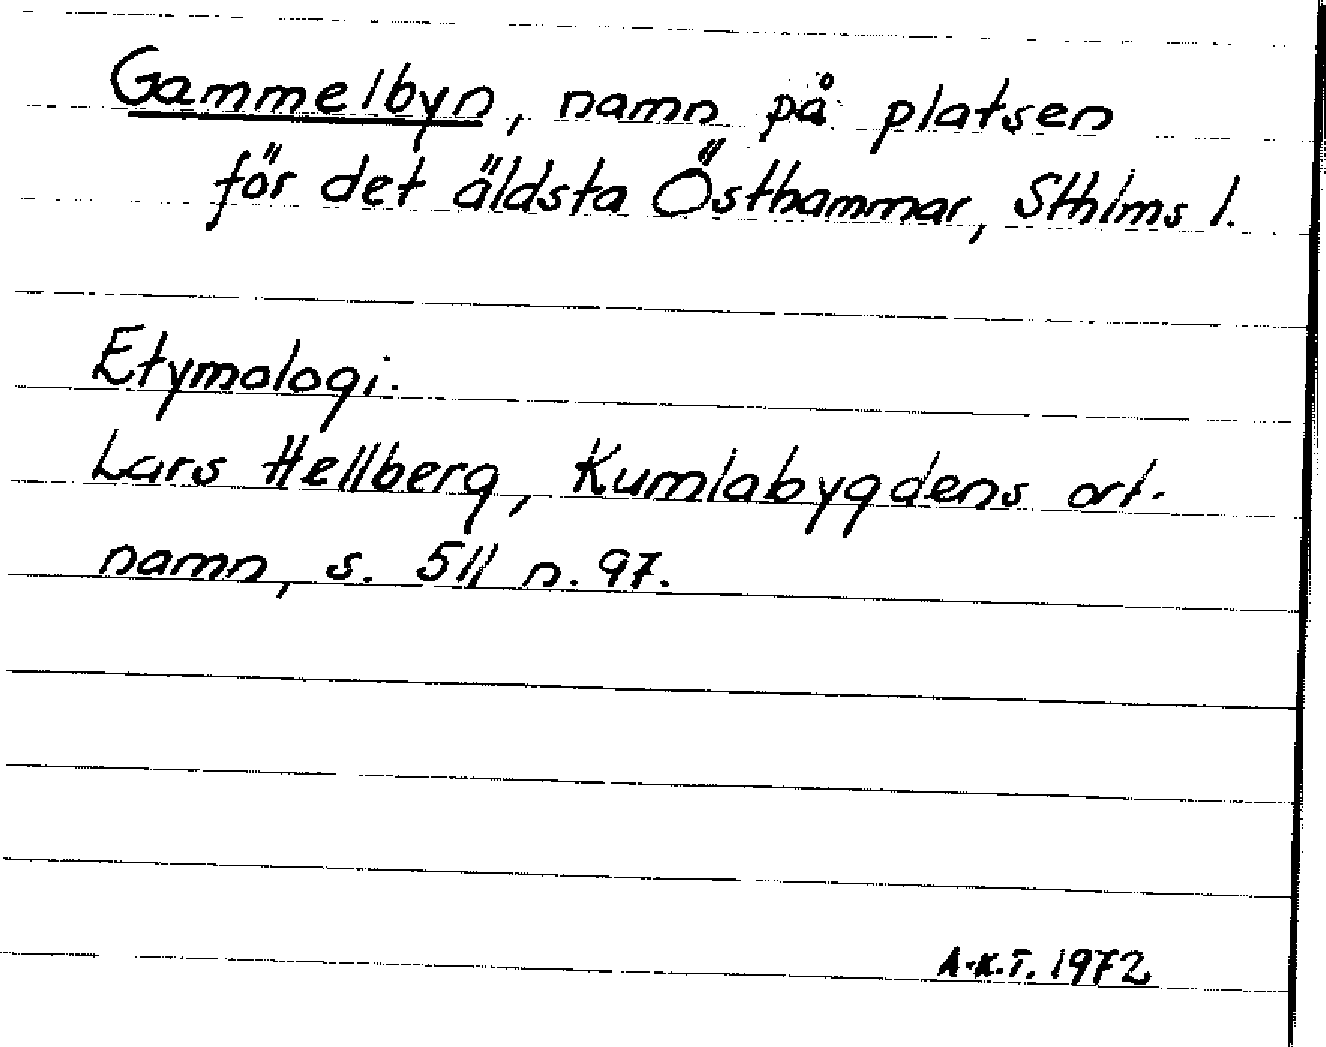 Gammelbyn, namn på platsen
för det äldsta Östhammar, Sthlms l.
Etymologi.
Lars Hellberg, Kumlabygdens ort-
namn, s. 511 n. 97.
A-K.T. 1972